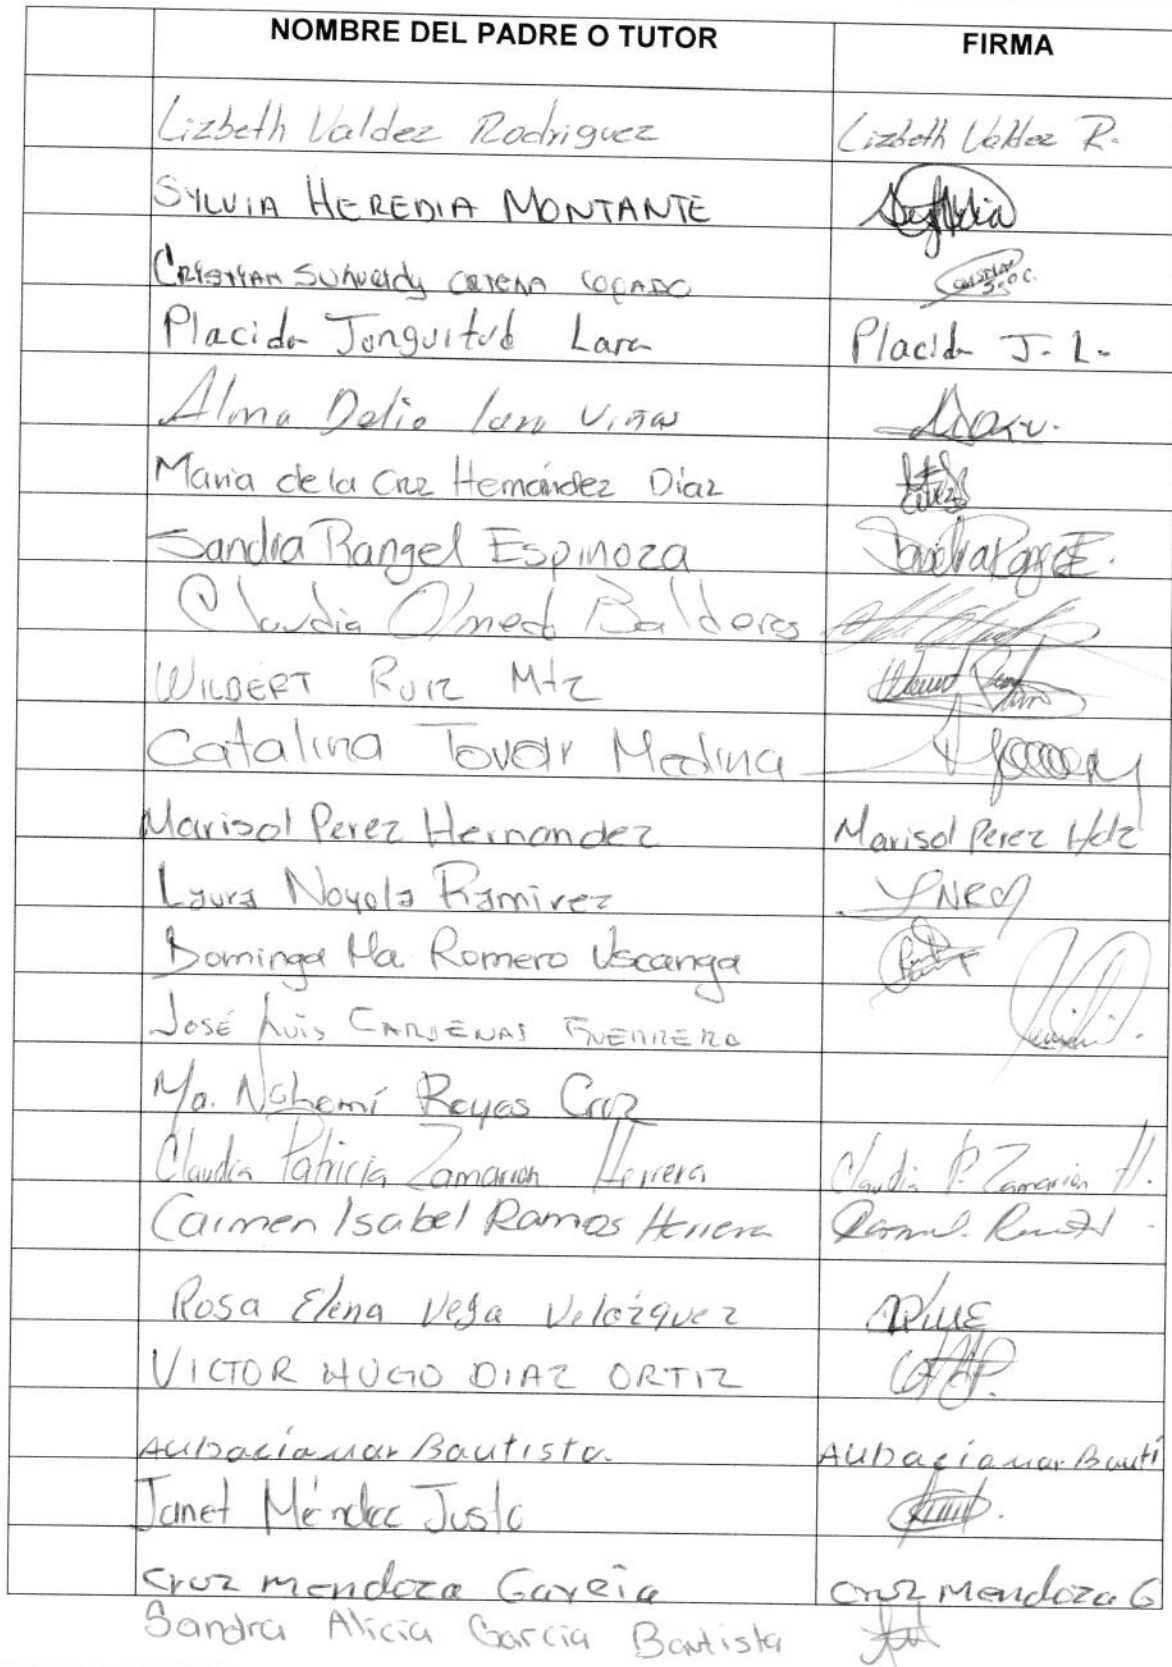 NOMBRE DEL PADRE O TUTOR FIRMA
Lizbeth Valdez Rodriguez Lizbeth Valdez R.
SYLVIA HEREDIA MONTANTE
CRISTIAN
Placida Jonguitud Lara Placida J. L.
Alma Delia Lara Viñas
Maria de la Cruz Hernández Díaz
Sandra Rangel Espinoza
Claudia Olmedo Balderas
WILBERT RUIZ Mtz
Catalina Tovar Medina
Marisol Perez Hernandez Marisol Perez Hdz
Laura Noyola Ramirez
Dominga Ma. Romero Uscanga
JOSÉ LUIS CARDENAS GUERRERO
Ma. Nohemí Reyes Cruz
Claudia Patricia Zamarron Herrera Claudia P. Zamarron H.
Carmen Isabel Ramos Herrera
Rosa Elena Vega Velázquez
VICTOR HUGO DIAZ ORTIZ
Bautista.
Janet Méndez Justo
Cruz mendoza Garcia Cruz Mendoza G
Sandra Alicia Garcia Bautista